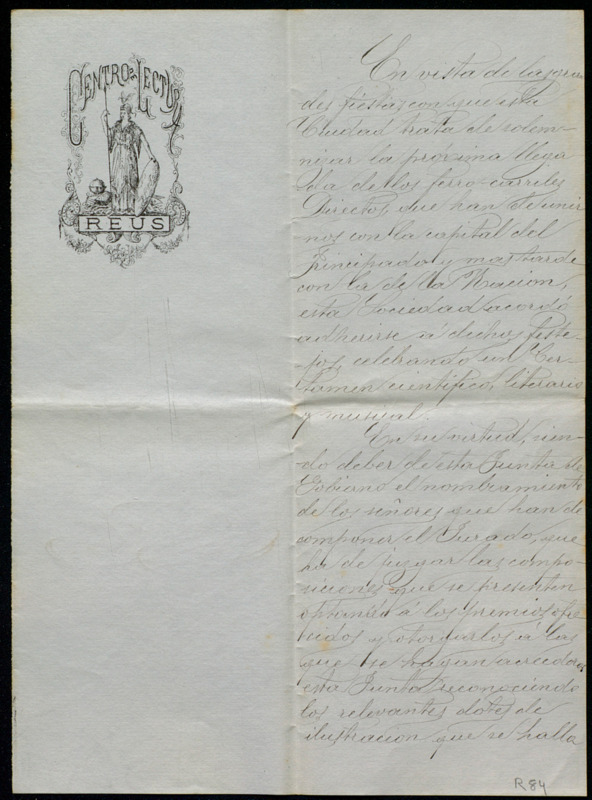 CENTRO DE LECTURA
REUS
En vista de las gran
des fiestas con que esta
Ciudad trata de solem-
nizar la próxima llega
da de los ferro-carriles
Directos, que han de unir
nos con la capital del
Principado y mas tarde
con la de la Nacion,
esta Sociedad acordó
adherirse á dichos feste-
jos, celebrando un Cer-
tamen cientifico, literario
y musical.
En su virtud, sien-
do deber de esta Junta de
Gobierno el nombramiento
de los señores que han de
componer el Jurado, que
ha de juzgar las compo-
siciones que se presenten
optando á los premios ofre
cidos y otorgarlos á las
que se hagan acreedoras
esta Junta reconociendo
los relevantes dotes de
ilustracion que se halla
R 84